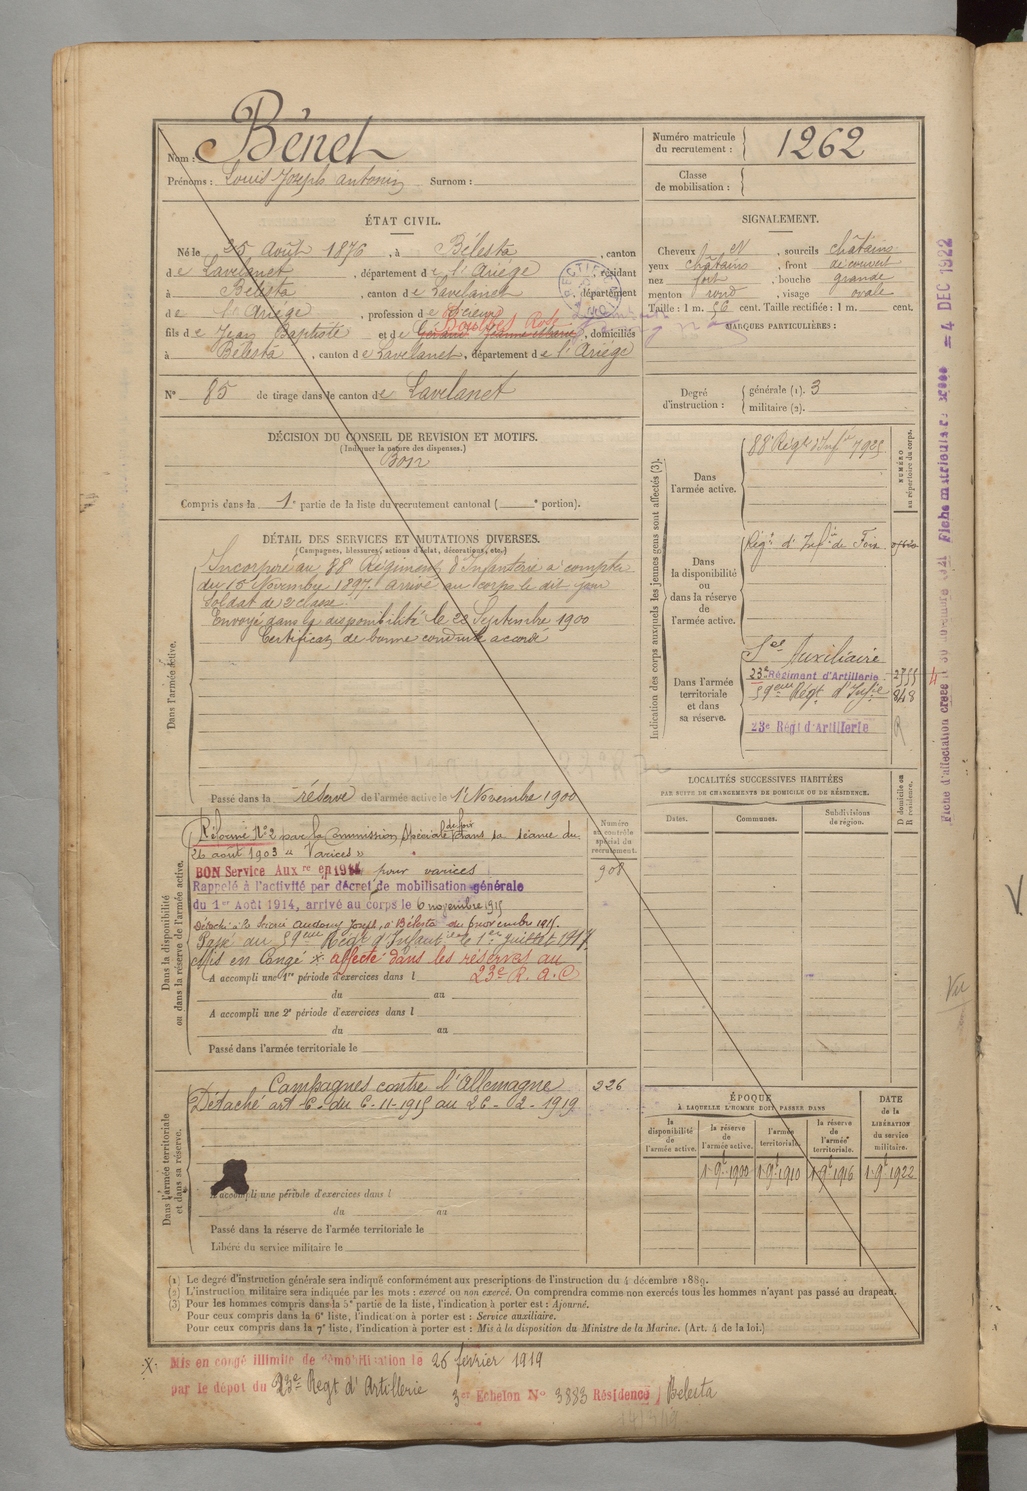 Nom : Bénet
Prénoms : Louis Joseph Antonin Surnom :
Numéro matricule du recrutement : 1262
Classe de mobilisation :
ÉTAT CIVIL.
Né le 25 Août 1876, à Bélesta, canton
de Lavelanet, département de l'Ariège, résidant
à Bélesta, canton de Lavelanet, département
de l'Ariège, profession de
fils de Jean Baptiste et de Bourges Rose, domiciliés
à Bélesta, canton de Lavelanet, département de l'Ariège
N° 85 de tirage dans le canton de Lavelanet
SIGNALEMENT.
Cheveux et, sourcils châtains
yeux châtains, front découvert
nez fort, bouche grande
menton rond, visage ovale
Taille : 1 m. 56 cent. Taille rectifiée : 1 m. cent.
MARQUES PARTICULIÈRES :
Degré d'instruction : générale (1). 3
militaire (2).
DÉCISION DU CONSEIL DE REVISION ET MOTIFS.
(Indiquer la nature des dispenses.)
Bon
Compris dans la 1e partie de la liste du recrutement cantonal ( e portion).
DÉTAIL DES SERVICES ET MUTATIONS DIVERSES.
(Campagnes, blessures, actions d'éclat, décorations, etc.)
Dans l'armée active.
Incorporé au 88e Régiment d'Infanterie à compter
du 16 Novembre 1897. arrivé au corps le dit jour
soldat de 2e classe.
Envoyé dans la disponibilité le 22 Septembre 1900
Certificat de bonne conduite accordé
Passé dans la réserve de l'armée active le 1er Novembre 1900
Indication des corps auxquels les jeunes gens sont affectés (3).
NUMÉRO au répertoire du corps.
Dans l'armée active.
88e Régt d'Infie 7925
Dans la disponibilité ou dans la réserve de l'armée active.
Régt d'Infie de Foix
Dans l'armée territoriale et dans sa réserve.
Sce Auxiliaire
23e Régiment d'Artillerie 2555
59eme Régt d'Infie 848
23e Régt d'Artillerie R
Fiche d'affectation créée le 30 novembre 1921 Fiche matricule créée = 4 DEC 1922
LOCALITÉS SUCCESSIVES HABITÉES
PAR SUITE DE CHANGEMENTS DE DOMICILE OU DE RÉSIDENCE.
Dates. Communes. Subdivisions de région. D domicile ou R résidence.
Dans la disponibilité ou dans la réserve de l'armée active.
Numéro au contrôle spécial du recrutement.
908
Réformé N°2 par la Commission spéciale de Foix dans sa séance du
26 août 1903 "Varices"
BON Service Auxre en 1914 pour varices
Rappelé à l'activité par décret de mobilisation générale
du 1er Août 1914, arrivé au corps le 6 novembre 1915
Détaché à la Scierie Audouy Joseph, à Bélesta du 6 novembre 1915.
Passé au 59eme Régt d'Infanterie le 1er juillet 1917.
Mis en Congé X affecté dans les réserves au
23e R. A. C
A accompli une 1re période d'exercices dans l
du au
A accompli une 2e période d'exercices dans l
du au
Passé dans l'armée territoriale le
Dans l'armée territoriale et dans sa réserve.
Campagnes contre l'Allemagne 226
Détaché art 6. du 6-11-1915 au 26-02-1919
A accompli une période d'exercices dans l
du au
Passé dans la réserve de l'armée territoriale le
Libéré du service militaire le
ÉPOQUE
À LAQUELLE L'HOMME DOIT PASSER DANS
la disponibilité de l'armée active. la réserve de l'armée active. l'armée territoriale. la réserve de l'armée territoriale.
DATE de la LIBÉRATION du service militaire.
1 9bre 1900 1 9bre 1910 1 9bre 1916 1 9bre 1922
Vu
V.
(1) Le degré d'instruction générale sera indiqué conformément aux prescriptions de l'instruction du 4 décembre 1889.
(2) L'instruction militaire sera indiquée par les mots : exercé ou non exercé. On comprendra comme non exercés tous les hommes n'ayant pas passé au drapeau.
(3) Pour les hommes compris dans la 5e partie de la liste, l'indication à porter est : Ajourné.
Pour ceux compris dans la 6e liste, l'indication à porter est : Service auxiliaire.
Pour ceux compris dans la 7e liste, l'indication à porter est : Mis à la disposition du Ministre de la Marine. (Art. 4 de la loi.)
X. Mis en congé illimité de démobilisation le 26 février 1919
par le dépot du 23e Régt d'Artillerie 3er Echelon N° 3883 Résidence Bélesta